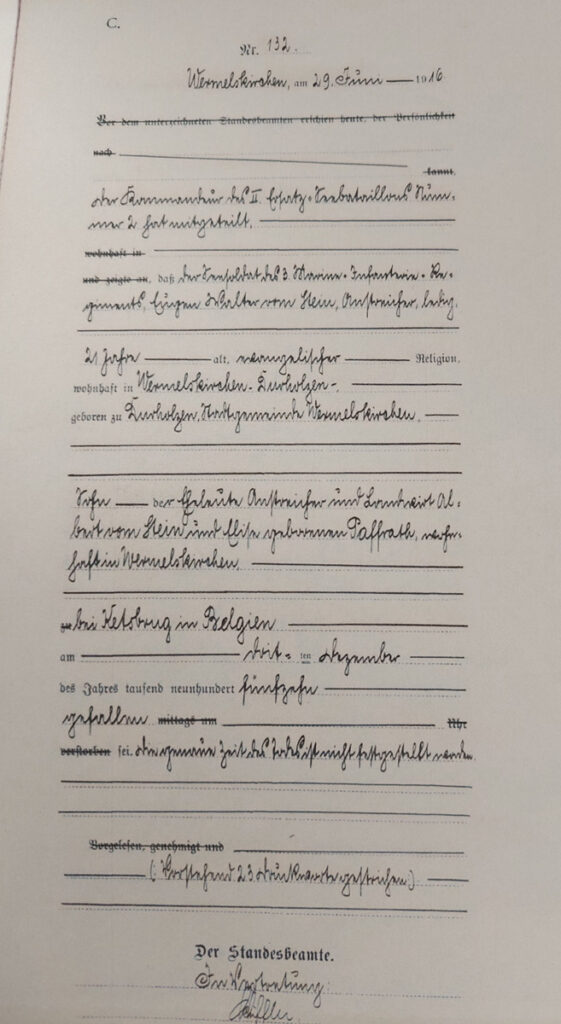 C.
Nr. 132.
Wermelskirchen, am 29. Juni 1916
Vor dem unterzeichneten Standesbeamten erschien heute, der Persönlichkeit
nach
kannt,
der Kommandeur des II. Ersatz-Seebataillons Num-
mer 2 hat mitgeteilt,
wohnhaft in
und zeigte an, daß der Seesoldat des 3. Marine-Infanterie-Re-
giments, Eugen Walter vom Stein, Anstreicher, ledig,
21 Jahre alt, evangelischer Religion,
wohnhaft in Wermelskirchen-Durholzen-,
geboren zu Durholzen, Stadtgemeinde Wermelskirchen,
Sohn der Eheleute Anstreicher und Landwirt Al-
bert vom Stein und Elise geborenen Paffrath, wohn-
haft in Wermelskirchen,
zu bei Ketsbrug in Belgien
am drit-ten Dezember
des Jahres tausend neunhundert fünfzehn
gefallen mittags um Uhr
verstorben sei. Die genaue Zeit des Todes ist nicht festgestellt worden.
Vorgelesen, genehmigt und
(: Vorstehend 23 Druckworte gestrichen :)
Der Standesbeamte.
In Vertretung: